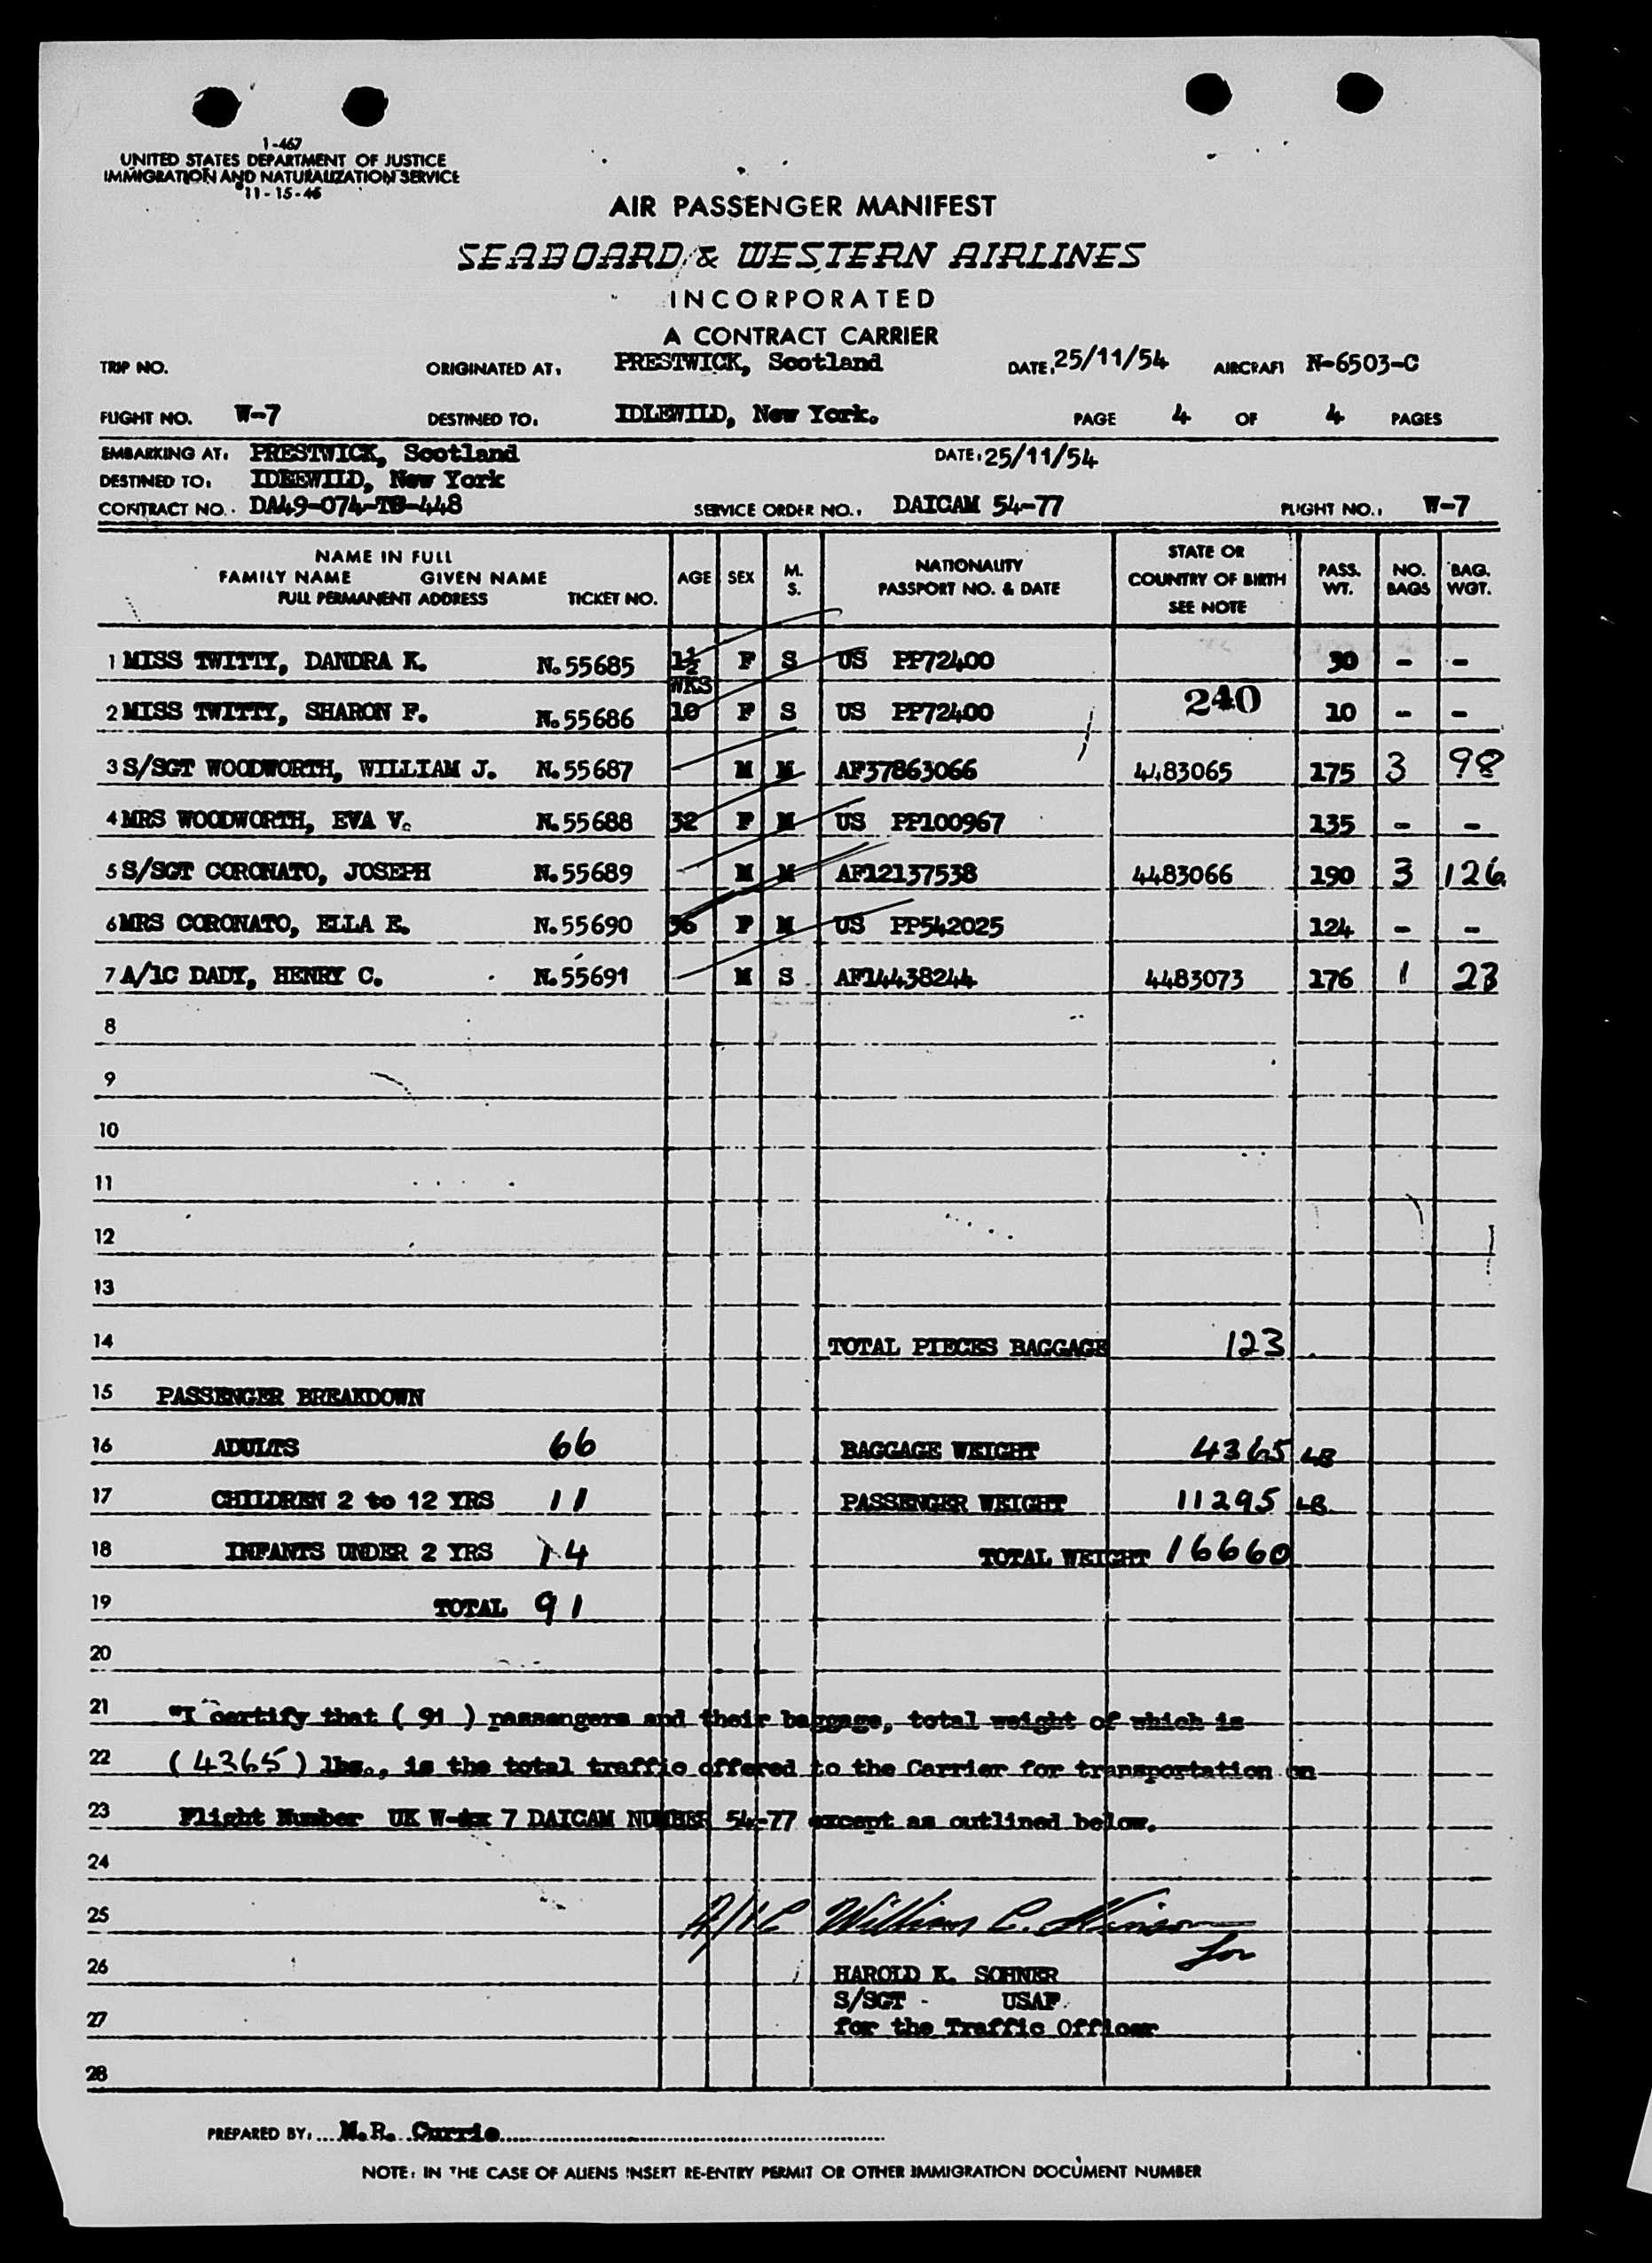 1-467
UNITED STATES DEPARTMENT OF JUSTICE
IMMIGRATION AND NATURALIZATION SERVICE
11-15-46
AIR PASSENGER MANIFEST
SEABOARD & WESTERN AIRLINES
INCORPORATED
A CONTRACT CARRIER
TRIP NO. ORIGINATED AT. PRESTWICK, Scotland DATE. 25/11/54 AIRCRAFT N-6503-C
FLIGHT NO. W-7 DESTINED TO. IDLEWILD, New York. PAGE 4 OF 4 PAGES
EMBARKING AT. PRESTWICK, Scotland DATE. 25/11/54
DESTINED TO. IDLEWILD, New York
CONTRACT NO. DA49-074-TB-448 SERVICE ORDER NO. DAICAM 54-77 FLIGHT NO. W-7
NAME IN FULL
FAMILY NAME GIVEN NAME
FULL PERMANENT ADDRESS TICKET NO. AGE SEX M. S. NATIONALITY PASSPORT NO. & DATE STATE OR COUNTRY OF BIRTH SEE NOTE PASS. WT. NO. BAGS BAG. WGT.
1 MISS TWITTY, DANDRA K. No. 55685 1½ F S US PP72400 30 - -
WKS 240
2 MISS TWITTY, SHARON F. No. 55686 10 F S US PP72400 10 - -
3 S/SGT WOODWORTH, WILLIAM J. No. 55687 M M AF37863066 4483065 175 3 98
4 MRS WOODWORTH, EVA V. No. 55688 32 F M US PP100967 135 - -
5 S/SGT CORONATO, JOSEPH No. 55689 M M AF12137538 4483066 190 3 126
6 MRS CORONATO, ELLA E. No. 55690 36 F M US PP542025 124 - -
7 A/1C DADY, HENRY C. No. 55691 M S AF14438244 4483073 176 1 23
8
9
10
11
12
13
14 TOTAL PIECES BAGGAGE 123
15 PASSENGER BREAKDOWN
16 ADULTS 66 BAGGAGE WEIGHT 4365 LB
17 CHILDREN 2 to 12 YRS 11 PASSENGER WEIGHT 11295 LB
18 INFANTS UNDER 2 YRS 14 TOTAL WEIGHT 16660
19 TOTAL 91
20
21 "I certify that ( 91 ) passengers and their baggage, total weight of which is
22 (4365) lbs., is the total traffic offered to the Carrier for transportation on
23 Flight Number UK W-xx 7 DAICAM NUMBER 54-77 except as outlined below.
24
25 A/1C William C.
for
26 HAROLD K. SOHNER
S/SGT - USAF
27 for the Traffic Officer
28
PREPARED BY. M.R. Currie
NOTE: IN THE CASE OF ALIENS INSERT RE-ENTRY PERMIT OR OTHER IMMIGRATION DOCUMENT NUMBER